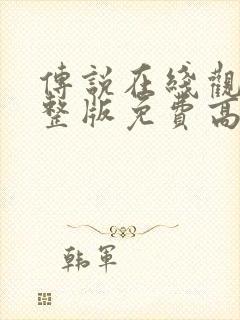 傳說在綫觀
整版免費高
韩軍